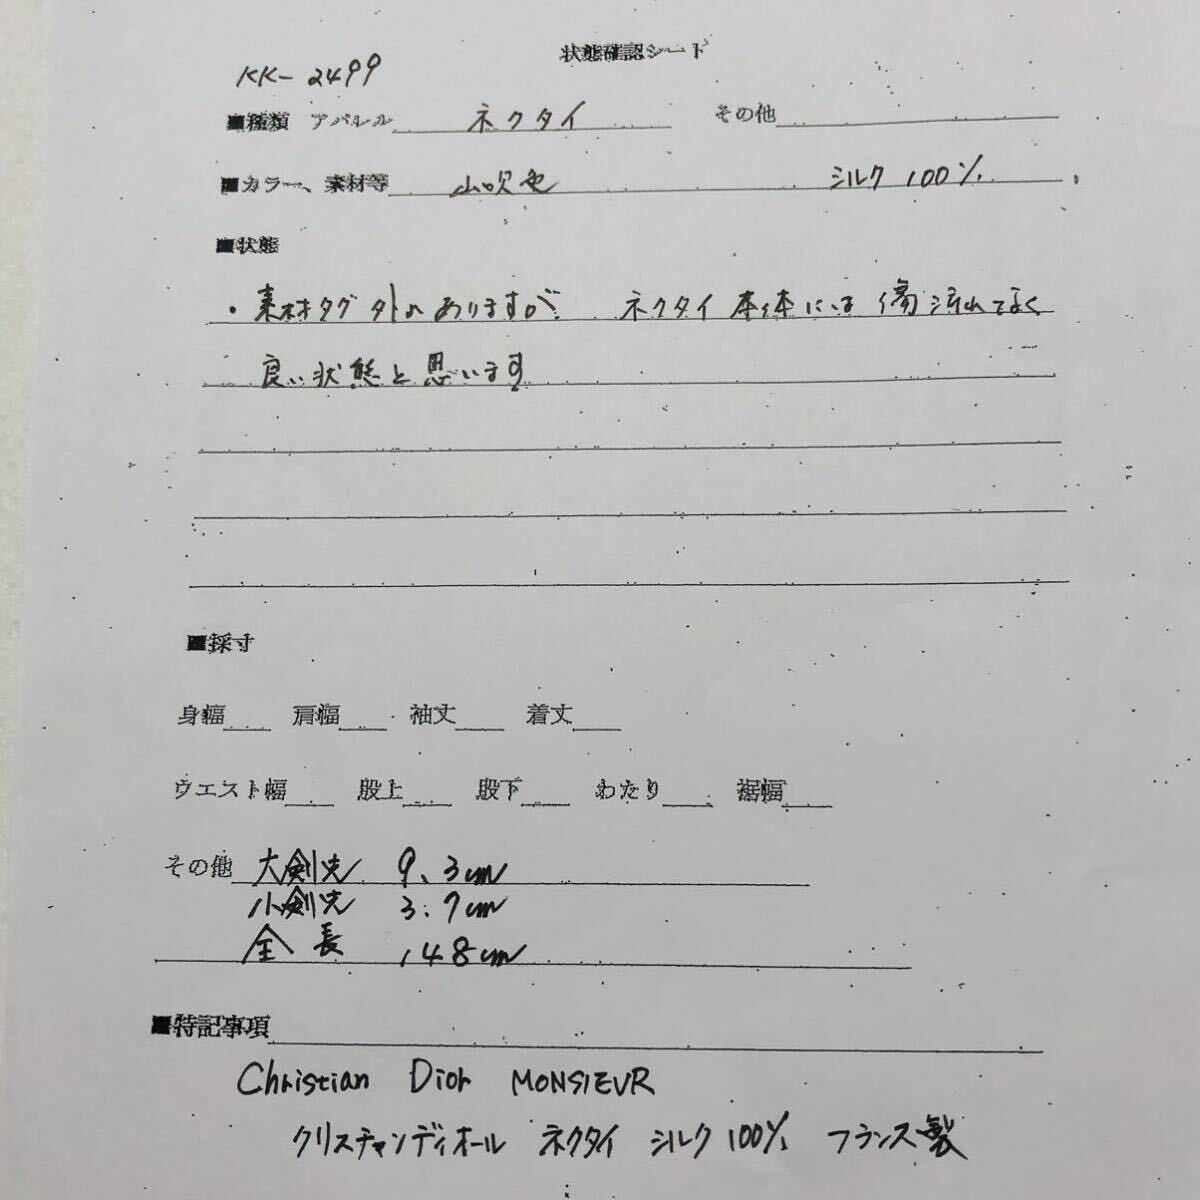 状態確認シート
KK-2499
■種類 アパレル ネクタイ その他
■カラー、素材等 山吹色 シルク 100%
■状態
・素材タグ外れありますが ネクタイ本体には傷汚れなく
良い状態と思います
■採寸
身幅 肩幅 袖丈 着丈
ウエスト幅 股上 股下 わたり 裾幅
その他 大剣先 9.3cm
小剣先 3.7cm
全長 148cm
■特記事項
Christian Dior MONSIEUR
クリスチャンディオール ネクタイ シルク100% フランス製